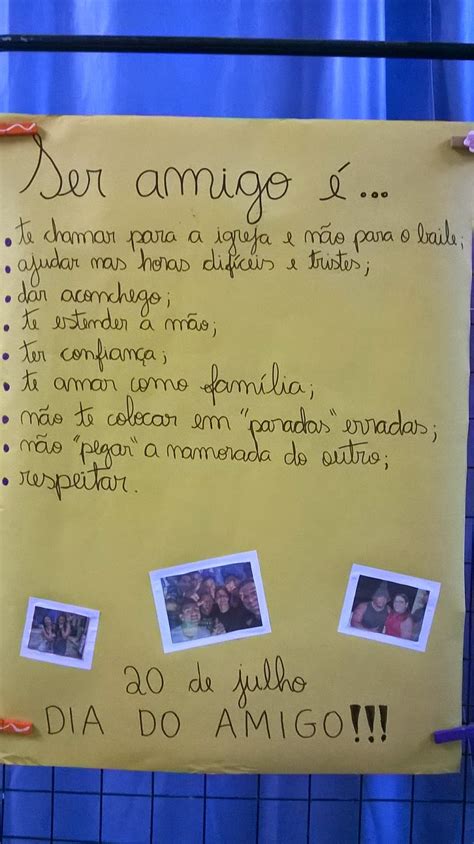 Ser amigo é...
• te chamar para a igreja e não para o baile;
• ajudar nas horas difíceis e tristes;
• dar aconchego;
• te estender a mão;
• ter confiança;
• te amar como família;
• não te colocar em "paradas" erradas;
• não "pegar" a namorada do outro;
• respeitar.
20 de julho
DIA DO AMIGO!!!